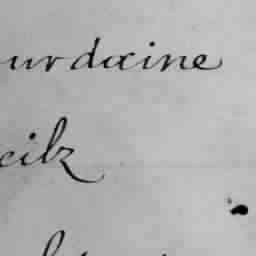 urdaine
cilz